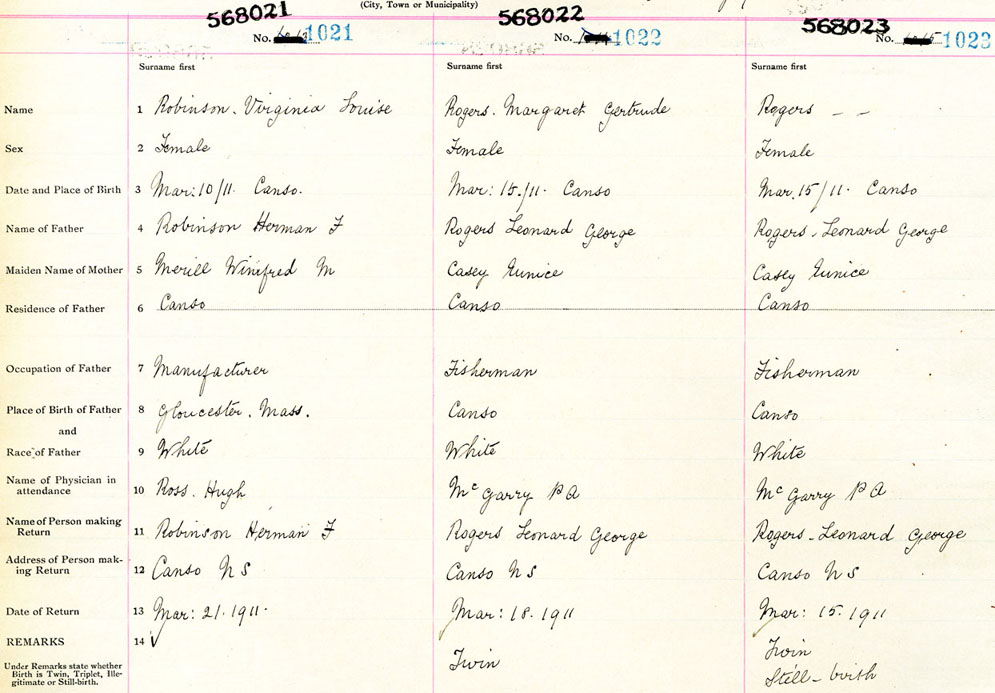 (City, Town or Municipality)
568021 568022 568023
No. 1021 No. 1022 No. 1023
Surname first Surname first Surname first
Name 1 Robinson. Virginia Louise Rogers. Margaret Gertrude Rogers — —
Sex 2 Female Female Female
Date and Place of Birth 3 Mar: 10/11. Canso. Mar: 15./11. Canso Mar. 15/11. Canso
Name of Father 4 Robinson Herman F Rogers Leonard George Rogers - Leonard George
Maiden Name of Mother 5 Merill Winifred M Casey Eunice Casey Eunice
Residence of Father 6 Canso Canso Canso
Occupation of Father 7 Manufacturer Fisherman Fisherman
Place of Birth of Father 8 Gloucester. Mass. Canso Canso
and
Race of Father 9 White White White
Name of Physician in
attendance 10 Ross. Hugh McGarry P A McGarry P A
Name of Person making
Return 11 Robinson Herman F Rogers Leonard George Rogers - Leonard George
Address of Person mak-
ing Return 12 Canso N S Canso N S Canso N S
Date of Return 13 Mar: 21. 1911. Mar: 18. 1911 Mar: 15. 1911
REMARKS 14 ✓
Under Remarks state whether
Birth is Twin, Triplet, Ille-
gitimate or Still-birth.
Twin Twin
Still-birth